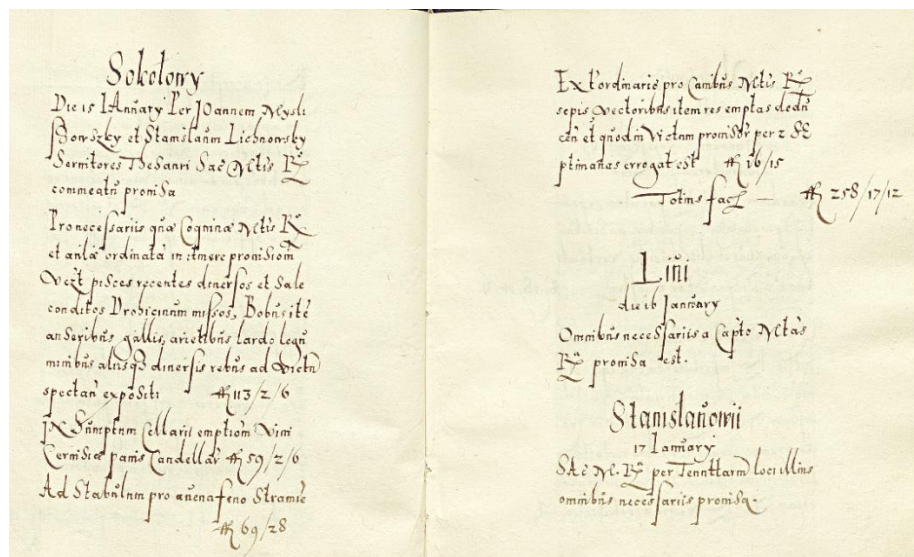 Sokołowy
Die 15 IAnuary Per JOannem Mysli
Borvszky et Stanislaum Lichnowsky
Servitores Thesauri Sac Mtis Rg
commeatu provisa
Pro necessariis quae Coqninae Mtis Rg
et aulae ordinata in itinere provisiom
pisces recentes diversos et Sale
conditos Drohicinum missos, Bobus ite
anseribus, gallis, arietibus lardo legu
minibus aliisqz diversis rebus ad Victu
spectan expositi fl 113/2/6
IN Sumptum Cellarii emptiom Vini
Cervisiae panis Candellar fl 59/2/6
Ad Stabulum pro avena feno Stramie
fl 69/28
Extordinarie pro Canibus Mtis Rg
item res emptas
et quodm Victum per 2 SE
ptimanas errogat est fl 16/15
Totius facl — fl 258/17/12
die 16 January
Omnibus necessariis a Capto Mtas
Rg provisa est.
Stanislauowii
17 January
SAc M. Rg per Tenuttarm loci illius
omnibus necessariis provisa.